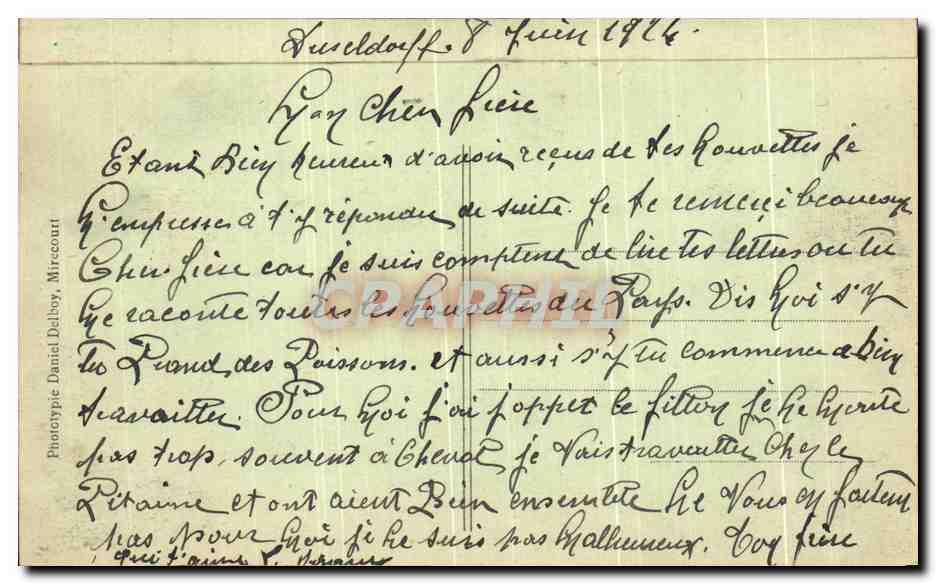 Duseldorff. 8 Juin 1924.
Mon Cher frère
Etant Bien heureux d'avoir reçus de tes nouvelles je
m'empresse à t'y répondre de suite. Je te remerçi beaucoup
Cher frère car je suis comptent de lire tes lettres ou tu
me raconte toutes les nouvelles du Pays. Dis moi s'y
tu Prand des Poissons. et aussi s'y tu commence a bien
travailler. Pour moi j'ai le fillon je ne monte
pas trop souvent à Cheval je Vais travailler Chez le
Pitaine et ont aient Bien ensemble ne Vous en faites
pas pour moi je ne suis pas malheureux. Ton frère
qui t'aime
Phototypie Daniel Delboy, Mirecourt
CPAPHIL